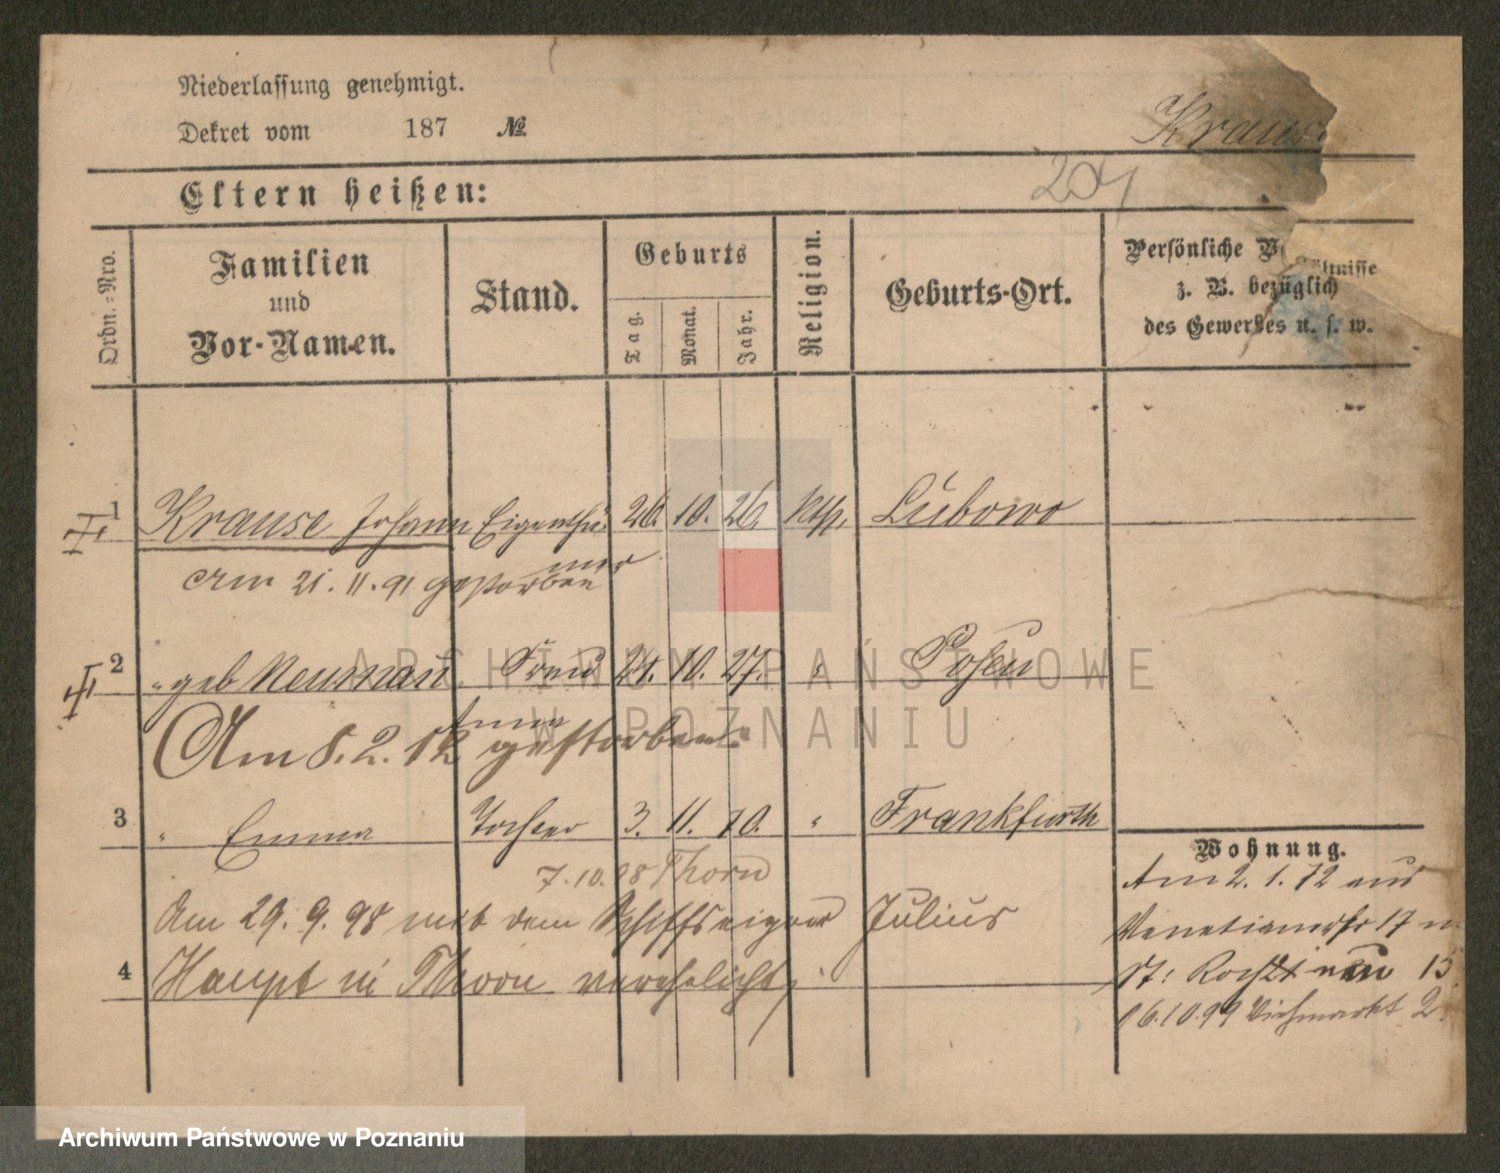 Niederlassung genehmigt.
Dekret vom 187 №
Krause
204
Eltern heißen:
Ordn.-Nro.
Familien
und
Vor-Namen.
Stand.
Geburts
Tag.
Monat.
Jahr.
Religion.
Geburts-Ort.
Persönliche Verhältnisse
z. B. bezüglich
des Gewerbes u. s. w.
1 Krause Johann Eigenthü- 26. 10. 26. kth. Lubowo
mer
Am 21. 11. 91 gestorben
2 " geb Neuman Frau 21. 10. 27. " Posen
Anna
Am 8. 2. 12 gestorben.
3 " Emma Tochter 3. 11. 70. " Frankfurth
7.10.98 Thorn
Am 29. 9. 98 mit dem Schiffseigner Julius
4 Haupt in Thorn verehelicht,
Wohnung.
Am 2. 1. 72 aus
Venetianerstr 17 n.
St: Rocht neu 15
16.10.99 Viehmarkt 2.
ARCHIWUM PAŃSTWOWE
W POZNANIU
Archiwum Państwowe w Poznaniu